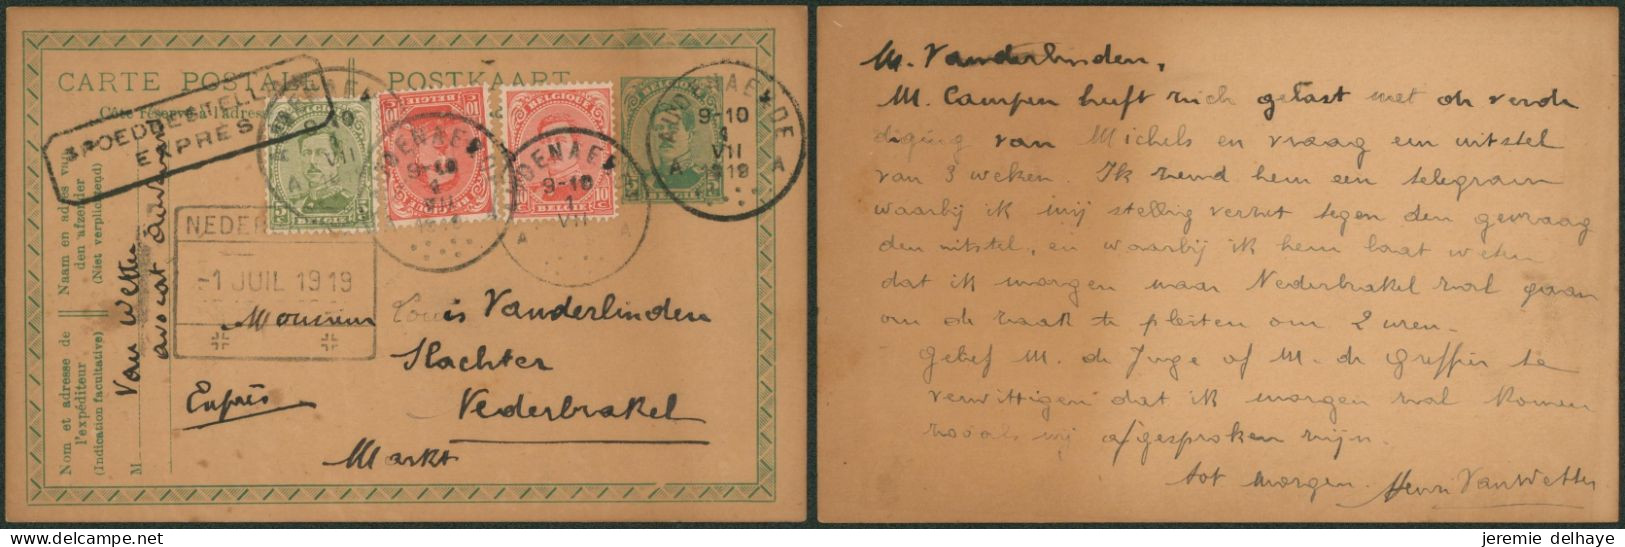 CARTE POSTALE POSTKAART
Côté réservé à l'adresse
SPOEDBESTELLING
EXPRÈS
AUDENAERDE
9-10
1
VII
1919
A A
BELGIQUE
BELGIE
NEDER
-1 JUIL 1919
Naam en adres van
den afzender
(Niet verplichtend)
Nom et adresse de
l'expéditeur
(Indication facultative)
M
Van Wetter
avocat Audenarde
Monsieur Louis Vanderlinden
Slachter
Exprès Nederbrakel
Markt
M. Vanderlinden,
M. Campen heeft zich gelast met de verde
diging van Michels en vraag een uitstel
van 3 weken. Ik zend hem een telegram
waarbij ik mij stellig verzet tegen den gevraag
den uitstel, en waarbij ik hem laat weten
dat ik morgen naar Nederbrakel zal gaan
om de zaak te pleiten om 2 uren.
Gelief M. de Juge of M. de Greffier te
verwittigen dat ik morgen zal komen
zooals wij afgesproken zijn.
Tot morgen. Henri Van Wetter
jeremie delhaye